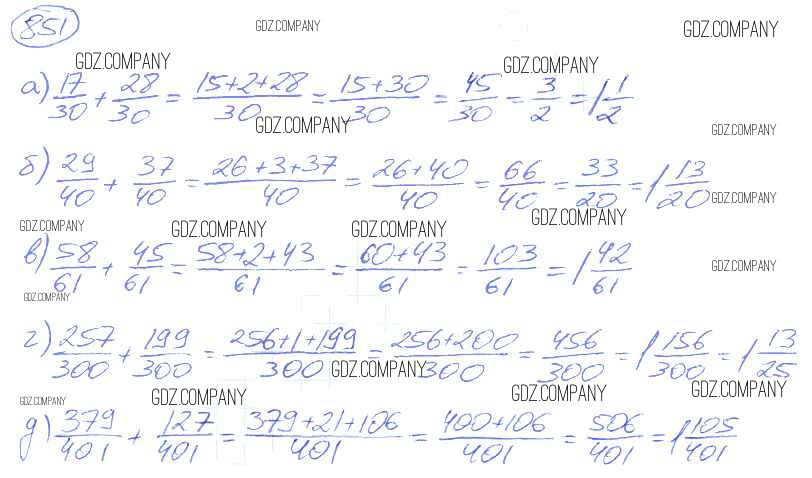 851
GDZ.COMPANY
GDZ.COMPANY
GDZ.COMPANY GDZ.COMPANY
а) 17/30 + 28/30 = (15+2+28)/30 = (15+30)/30 = 45/30 = 3/2 = 1 1/2
GDZ.COMPANY GDZ.COMPANY
б) 29/40 + 37/40 = (26+3+37)/40 = (26+40)/40 = 66/40 = 33/20 = 1 13/20
GDZ.COMPANY
GDZ.COMPANY GDZ.COMPANY GDZ.COMPANY GDZ.COMPANY
в) 58/61 + 45/61 = (58+2+43)/61 = (60+43)/61 = 103/61 = 1 42/61
GDZ.COMPANY
GDZ.COMPANY
г) 257/300 + 199/300 = (256+1+199)/300 = (256+200)/300 = 456/300 = 1 156/300 = 1 13/25
GDZ.COMPANY
GDZ.COMPANY GDZ.COMPANY GDZ.COMPANY GDZ.COMPANY
д) 379/401 + 127/401 = (379+21+106)/401 = (400+106)/401 = 506/401 = 1 105/401